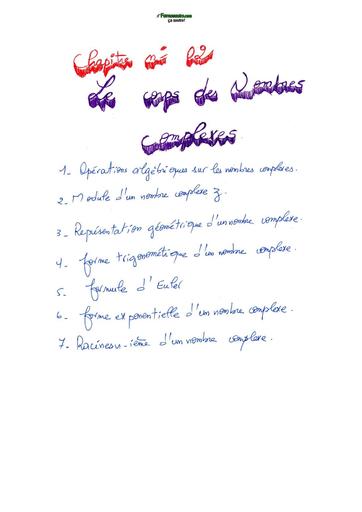 Chapitre n° 02
Le corps des Nombres
Complexes
1- Opérations algébriques sur les nombres complexes.
2- Module d'un nombre complexe z.
3- Représentation géométrique d'un nombre complexe.
4- forme trigonométrique d'un nombre complexe.
5- formule d'Euler
6- forme exponentielle d'un nombre complexe.
7- Racines n-ième d'un nombre complexe.